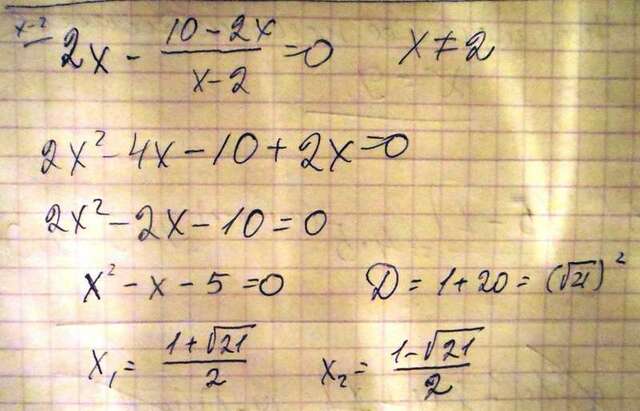 x-2
2x - (10-2x)/(x-2) = 0 x ≠ 2
2x² - 4x - 10 + 2x = 0
2x² - 2x - 10 = 0
x² - x - 5 = 0 D = 1 + 20 = (√21)²
x₁ = (1+√21)/2 x₂ = (1-√21)/2